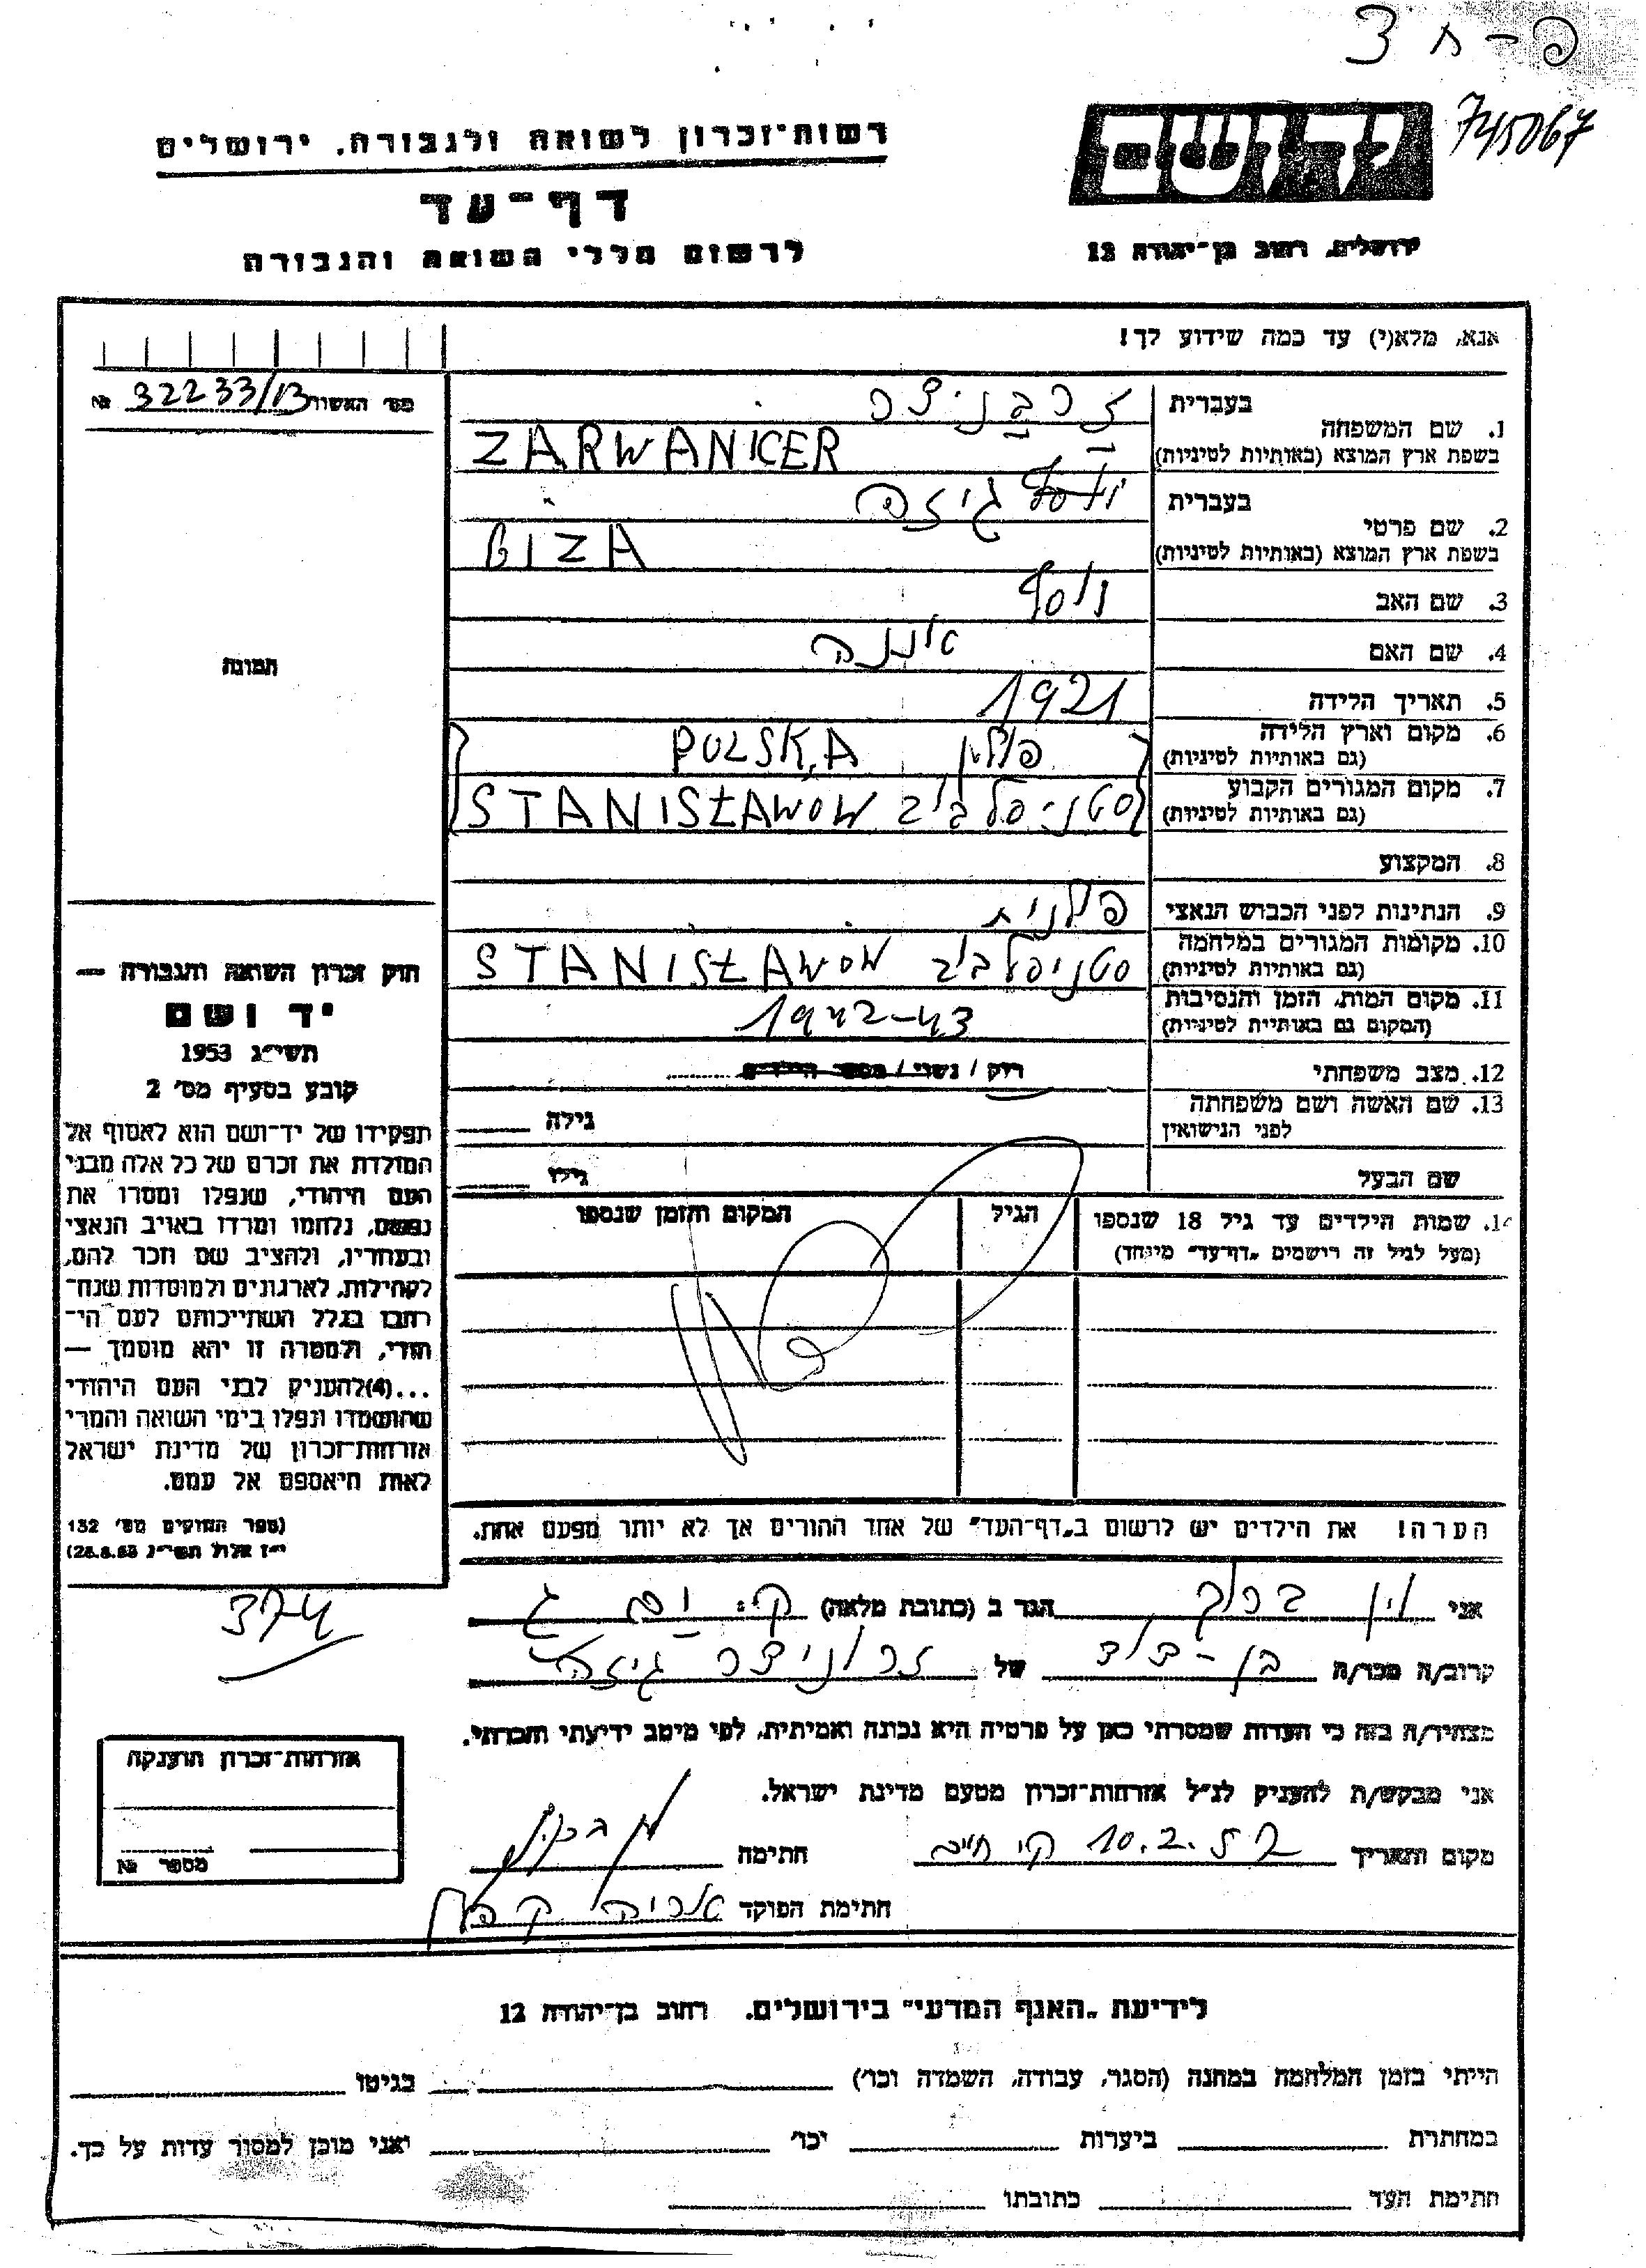 פ-ח 3
745067
יד ושם
ירושלים, רחוב בן־יהודה 12
רשות־זכרון לשואה ולגבורה, ירושלים
דף־עד
לרשום חללי השואה והגבורה
אנא, מלא(י) עד כמה שידוע לך!
מס׳ האשור 32233/13 №
תמונה
1. שם המשפחה
בעברית זרבניצר
בשפת ארץ המוצא (באותיות לטיניות) ZARWANICER
2. שם פרטי
בעברית יוסף גיזה
בשפת ארץ המוצא (באותיות לטיניות) GIZA
3. שם האב יוסף
4. שם האם
5. תאריך הלידה 1921
6. מקום וארץ הלידה פולין POLSKA
(גם באותיות לטיניות)
7. מקום המגורים הקבוע סטניסלביב STANISŁAWOW
(גם באותיות לטיניות)
8. המקצוע
9. הנתינות לפני הכבוש הנאצי פולנית
10. מקומות המגורים במלחמה סטניסלביב STANISŁAWOW
(גם באותיות לטיניות)
11. מקום המות, הזמן והנסיבות 1942-43
(המקום גם באותיות לטיניות)
12. מצב משפחתי רוק / נשוי / מספר הילדים
13. שם האשה ושם משפחתה גילה
לפני הנישואין
שם הבעל גילו
14. שמות הילדים עד גיל 18 שנספו הגיל המקום והזמן שנספו
(מעל לגיל זה רישמים „דף־עד" מיוחד)
הערה! את הילדים יש לרשום ב„דף־העד" של אחד ההורים אך לא יותר מפעם אחת.
חוק זכרון השואה והגבורה —
יד ושם
תשי״ג 1953
קובע בסעיף מס׳ 2
תפקידו של יד־ושם הוא לאסוף אל
המולדת את זכרם של כל אלה מבני
העם היהודי, שנפלו ומסרו את
נפשם, נלחמו ומרדו באויב הנאצי
ובעוזריו, ולהציב שם וזכר להם,
לקהילות, לארגונים ולמוסדות שנח־
רבו בגלל השתייכותם לעם הי־
הודי, ולמטרה זו יהא מוסמך —
...(4) להעניק לבני העם היהודי
שהושמדו ונפלו בימי השואה והמרי
אזרחות־זכרון של מדינת ישראל
לאות היאספם אל עמם.
(ספר החוקים מס׳ 132
י״ז אלול תשי״ג 28.8.53)
374
אני וין ברוך הגר ב (כתובת מלאה) ק. ים ג
קרוב/ה מכר/ה בן-דוד של זרוניצר גיזה
מצהיר/ה בזה כי העדות שמסרתי כאן על פרטיה היא נכונה ואמיתית, לפי מיטב ידיעתי והכרתי.
אני מבקש/ת להעניק לנ״ל אזרחות־זכרון מטעם מדינת ישראל.
מקום ותאריך קר׳ חיים 10.2.57 חתימה
חתימת הפוקד אריה
אזרחות־זכרון הוענקה
מספר №
לידיעת „האגף המדעי" בירושלים, רחוב בן־יהודה 12
הייתי בזמן המלחמה במחנה (הסגר, עבודה, השמדה וכו׳) בגיטו
במחתרת ביערות וכו׳ ואני מוכן למסור עדות על כך.
חתימת העד כתובתו